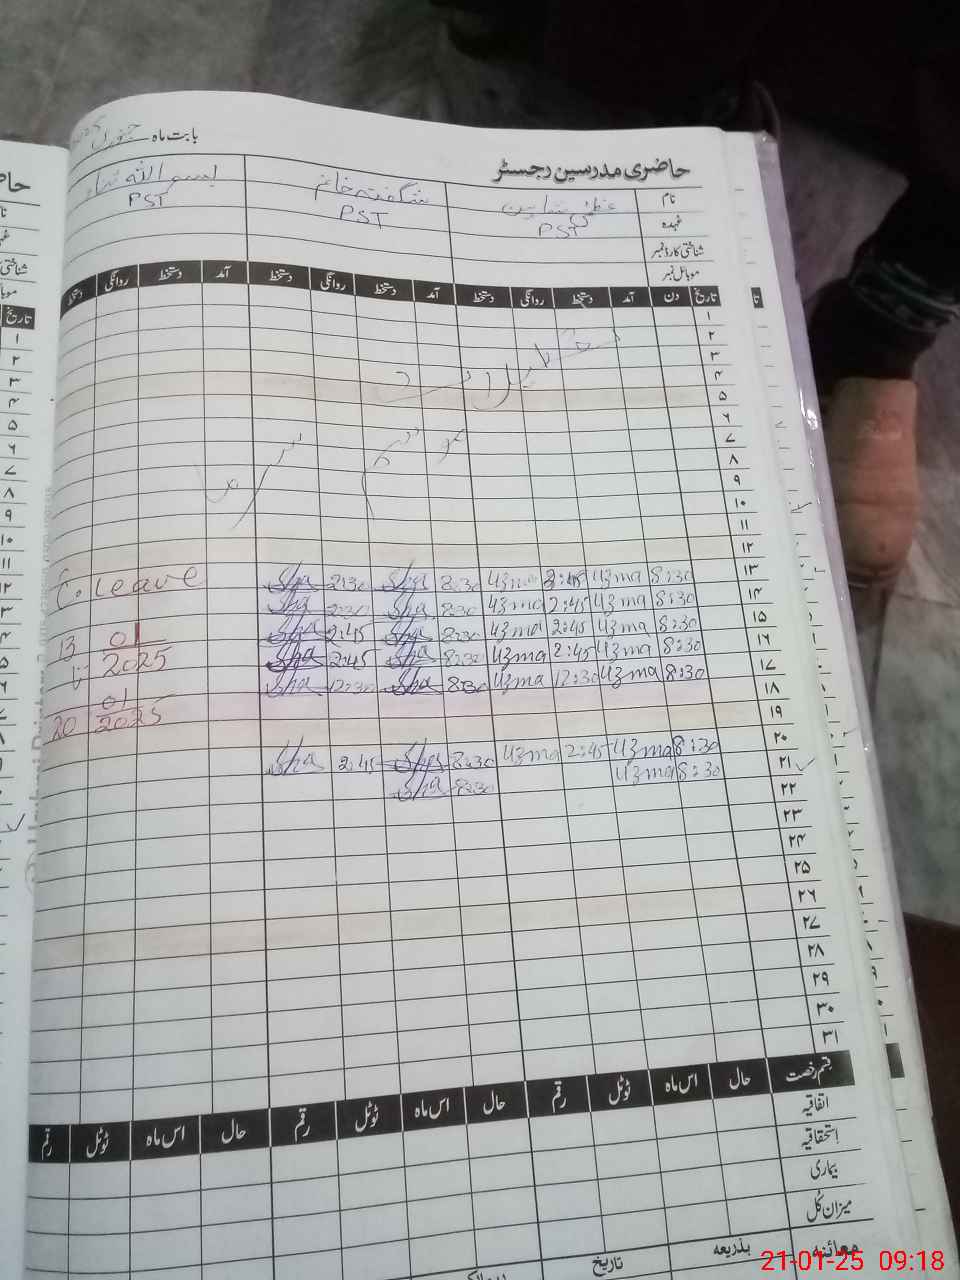 بابت ماہ جنوری
حاضری مدرسین رجسٹر
نام عظمیٰ شاہین شگفتہ خانم بسم اللہ
عہدہ PST PST PST
شناختی کارڈ نمبر
موبائل نمبر
تاریخ دن آمد دستخط روانگی دستخط آمد دستخط روانگی دستخط آمد دستخط روانگی دستخط
۱
۲
۳
۴
۵
۶
۷
۸
۹
۱۰
۱۱
۱۲
۱۳ 8:30 Uzma 2:45 Uzma 8:30 Sha 2:30 Sha C. Leave
۱۴ 8:30 Uzma 2:45 Uzma 8:30 Sha 2:30 Sha
۱۵ 8:30 Uzma 2:45 Uzma 8:30 Sha 2:45 Sha 13 01
۱۶ 8:30 Uzma 2:45 Uzma 8:30 Sha 2:45 Sha 2025
۱۷ 8:30 Uzma 12:30 Uzma 8:30 Sha 12:30 Sha 01
۱۸ 20 2025
۱۹
۲۰ 8:30 Uzma 2:45 Uzma 8:30 Sha 2:45 Sha
۲۱ 8:30 Uzma 8:30 Sha
۲۲
۲۳
۲۴
۲۵
۲۶
۲۷
۲۸
۲۹
۳۰
۳۱
قسم رخصت حال اس ماہ ٹوٹل رقم حال اس ماہ ٹوٹل رقم حال اس ماہ ٹوٹل رقم
اتفاقیہ
استحقاقیہ
بیماری
میزان کل
معائنہ بذریعہ تاریخ
21-01-25 09:18